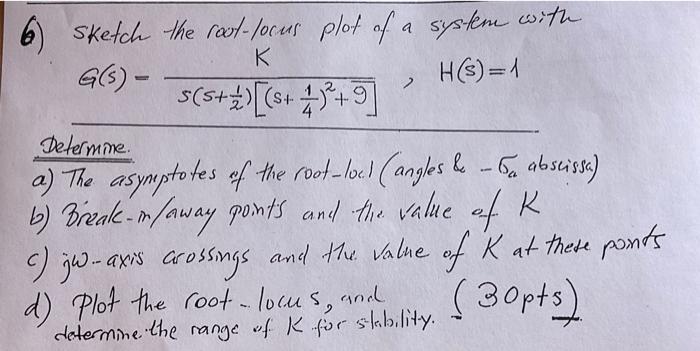 6) Sketch the root-locus plot of a system with
G(s) = K / s(s+1/2)[(s+1/4)²+9] , H(s)=1
Determine.
a) The asymptotes of the root-loci (angles & -σa abscissa)
b) Break-in/away points and the value of K
c) jw-axis crossings and the value of K at these points
d) Plot the root-locus, and (30pts)
determine the range of K for stability.